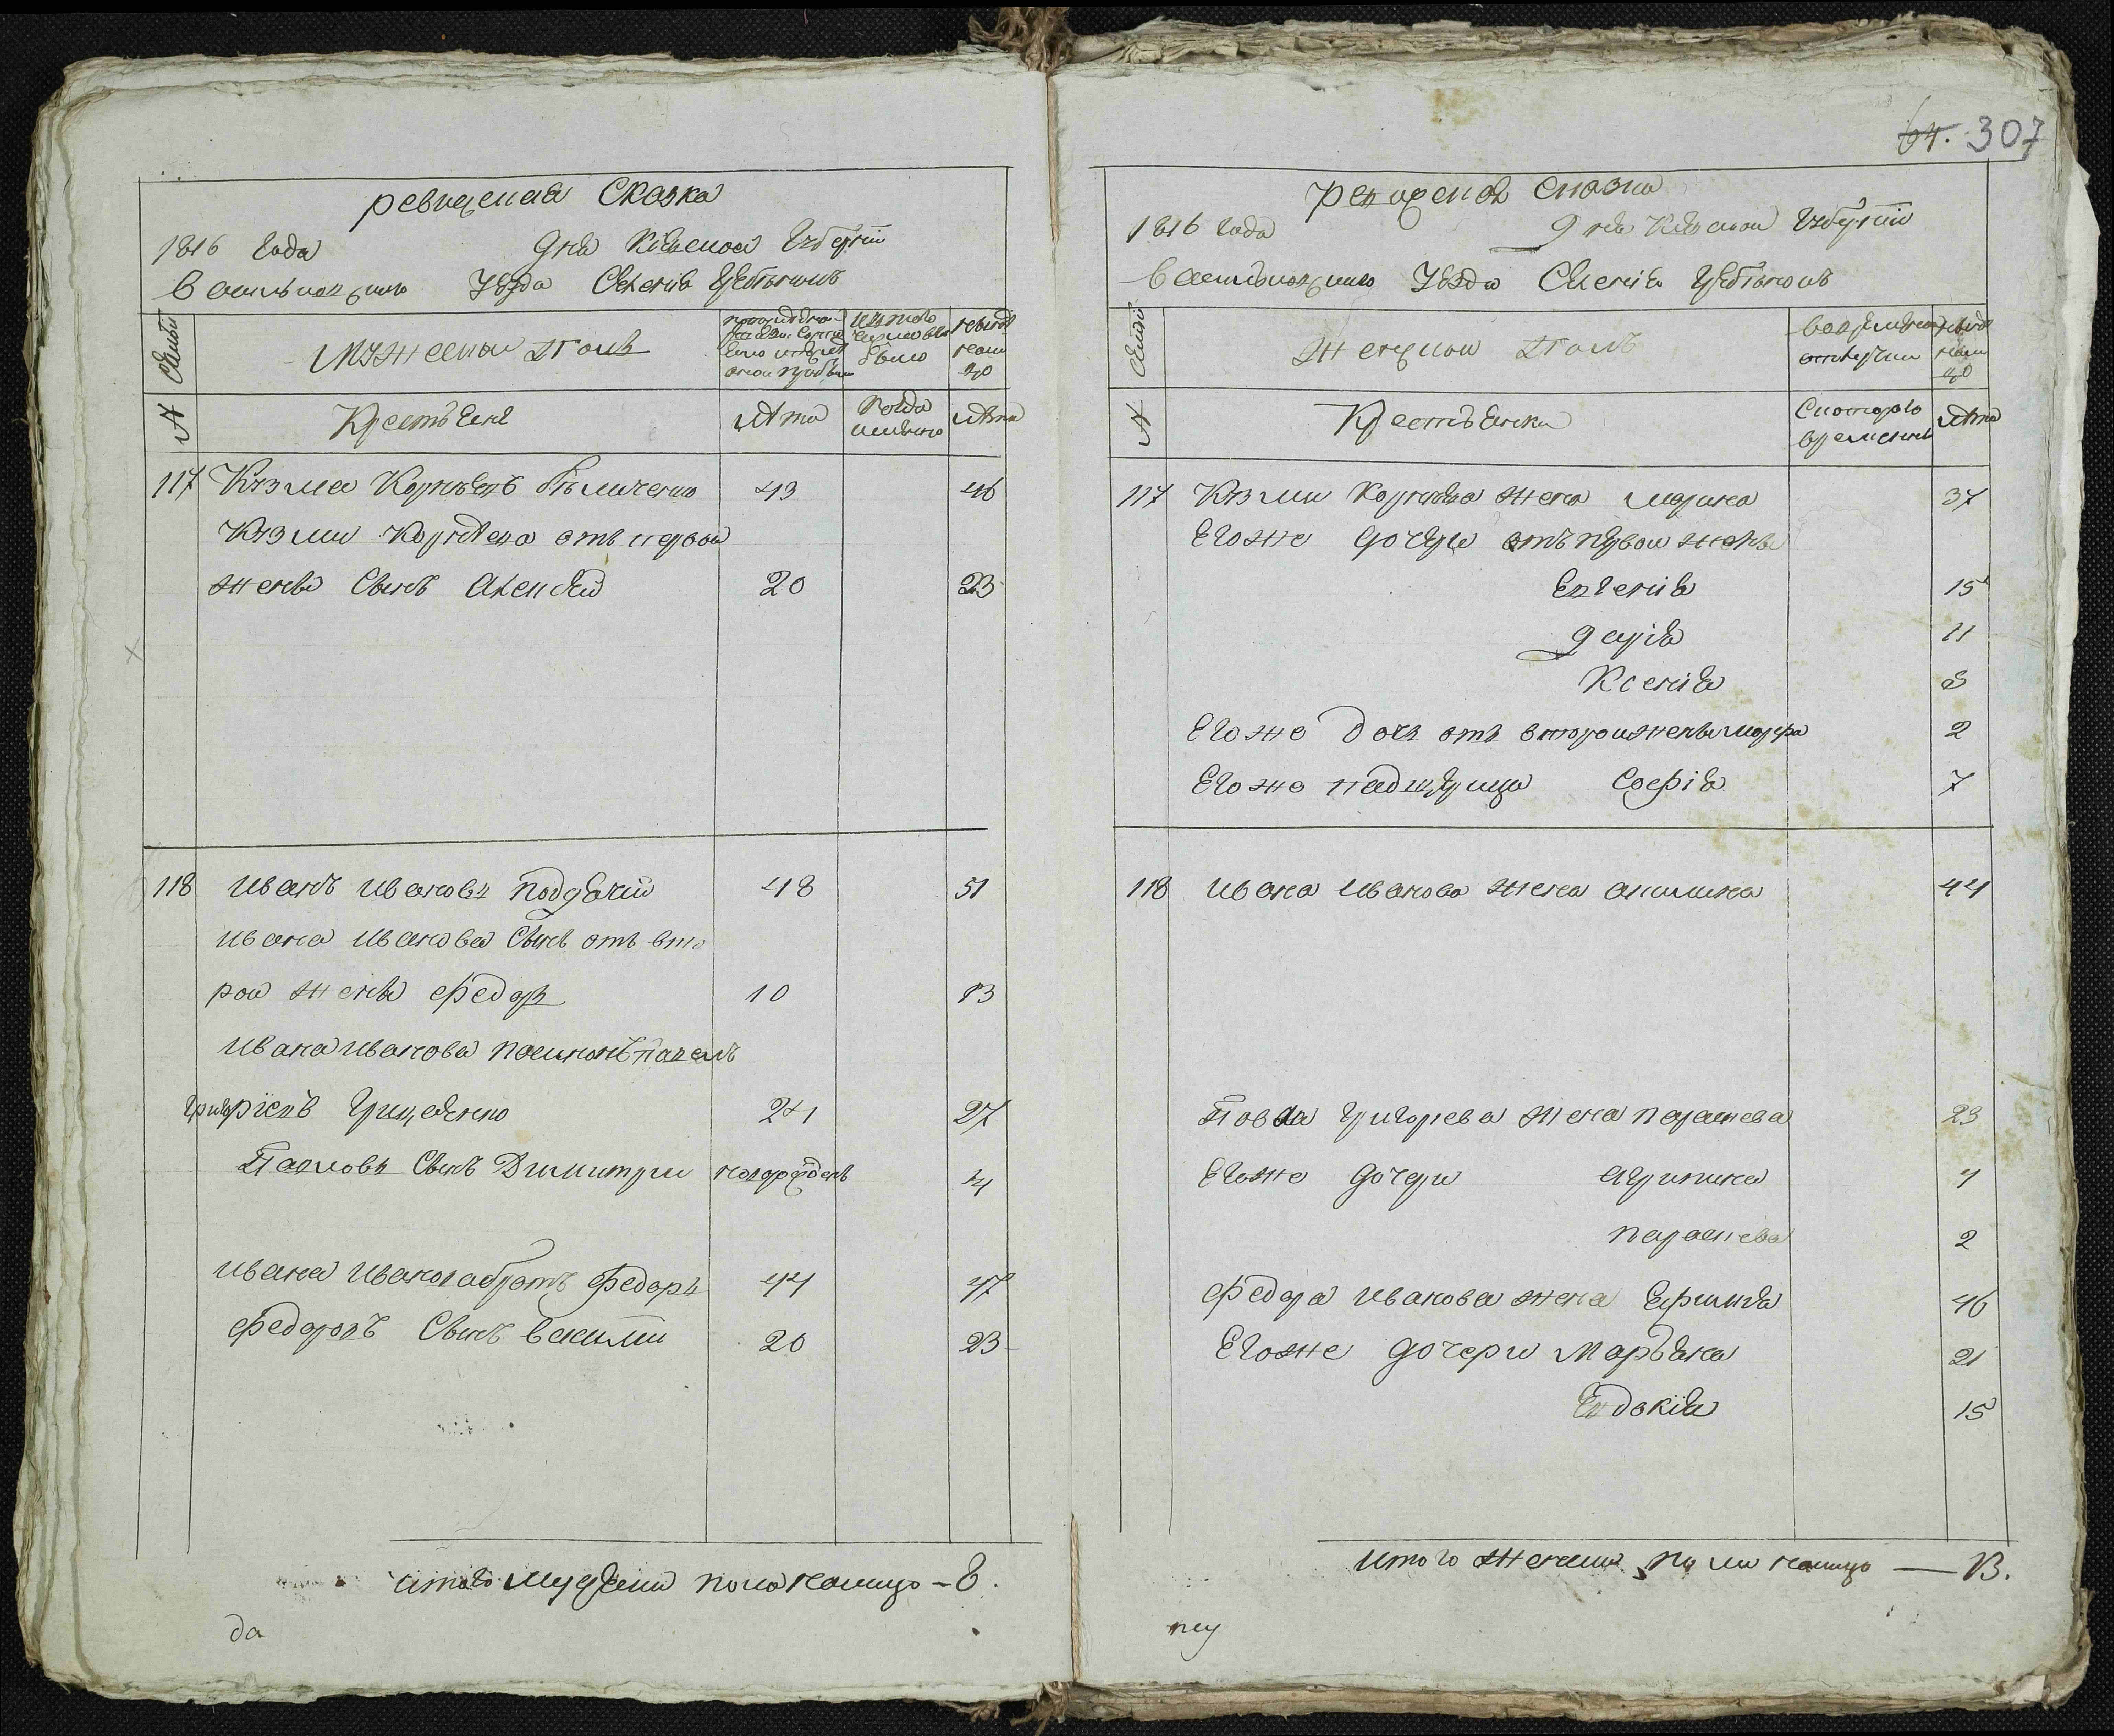 ревизская Сказка
1816 года дня Киевской Губернїи
Васильковского Уезда Селенїя
Семьи
Мужеской полъ
по последней ревизии состояло и после оной прибыло
изъ того числа выбыло
ныне на лицо
№
Крестьяне
лета
Когда именно
лета
117 Кузма Корнеевъ 43 46
Кузми Корнеева отъ первой
жены Сынъ Алексей 20 23
118 Иванъ Ивановъ Поддячїй 48 51
Ивана Иванова Сынъ отъ вто
рой жены Федоръ 10 13
Ивана Иванова пасынокъ Павелъ
Григорїевъ Гриценко 24 27
Павловъ Сынъ Димитри новорожденъ 4
Ивана Иванова братъ Федоръ 44 47
Федоровъ Сынъ Василїи 20 23
итого мужеска пола налицо – 8.
да
64. 307
ревизская сказка
1816 года дня Киевской Губернїи
Васильковского Уезда Селенїя
Семьи
Женской полъ
во временной отлучки
ныне на лицо
№
Крестьянки
Съ которого времени
лета
117 Кузми Корнеева жена Марина 37
Егоже дочери отъ первой жены
Евгенїя 15
дарїя 11
Ксенїя 8
Егоже дочь отъ второй жены Марфа 2
Егоже падщерица Софїя 7
118 Ивана Иванова жена Акилина 44
Павла Григорева жена параскева 23
Егоже дочери Агрипина 4
параскева 2
Федора Иванова жена Ефимїя 46
Егоже дочери Марьяна 21
Евдокїя 15
итого женска пола налицо — 13.